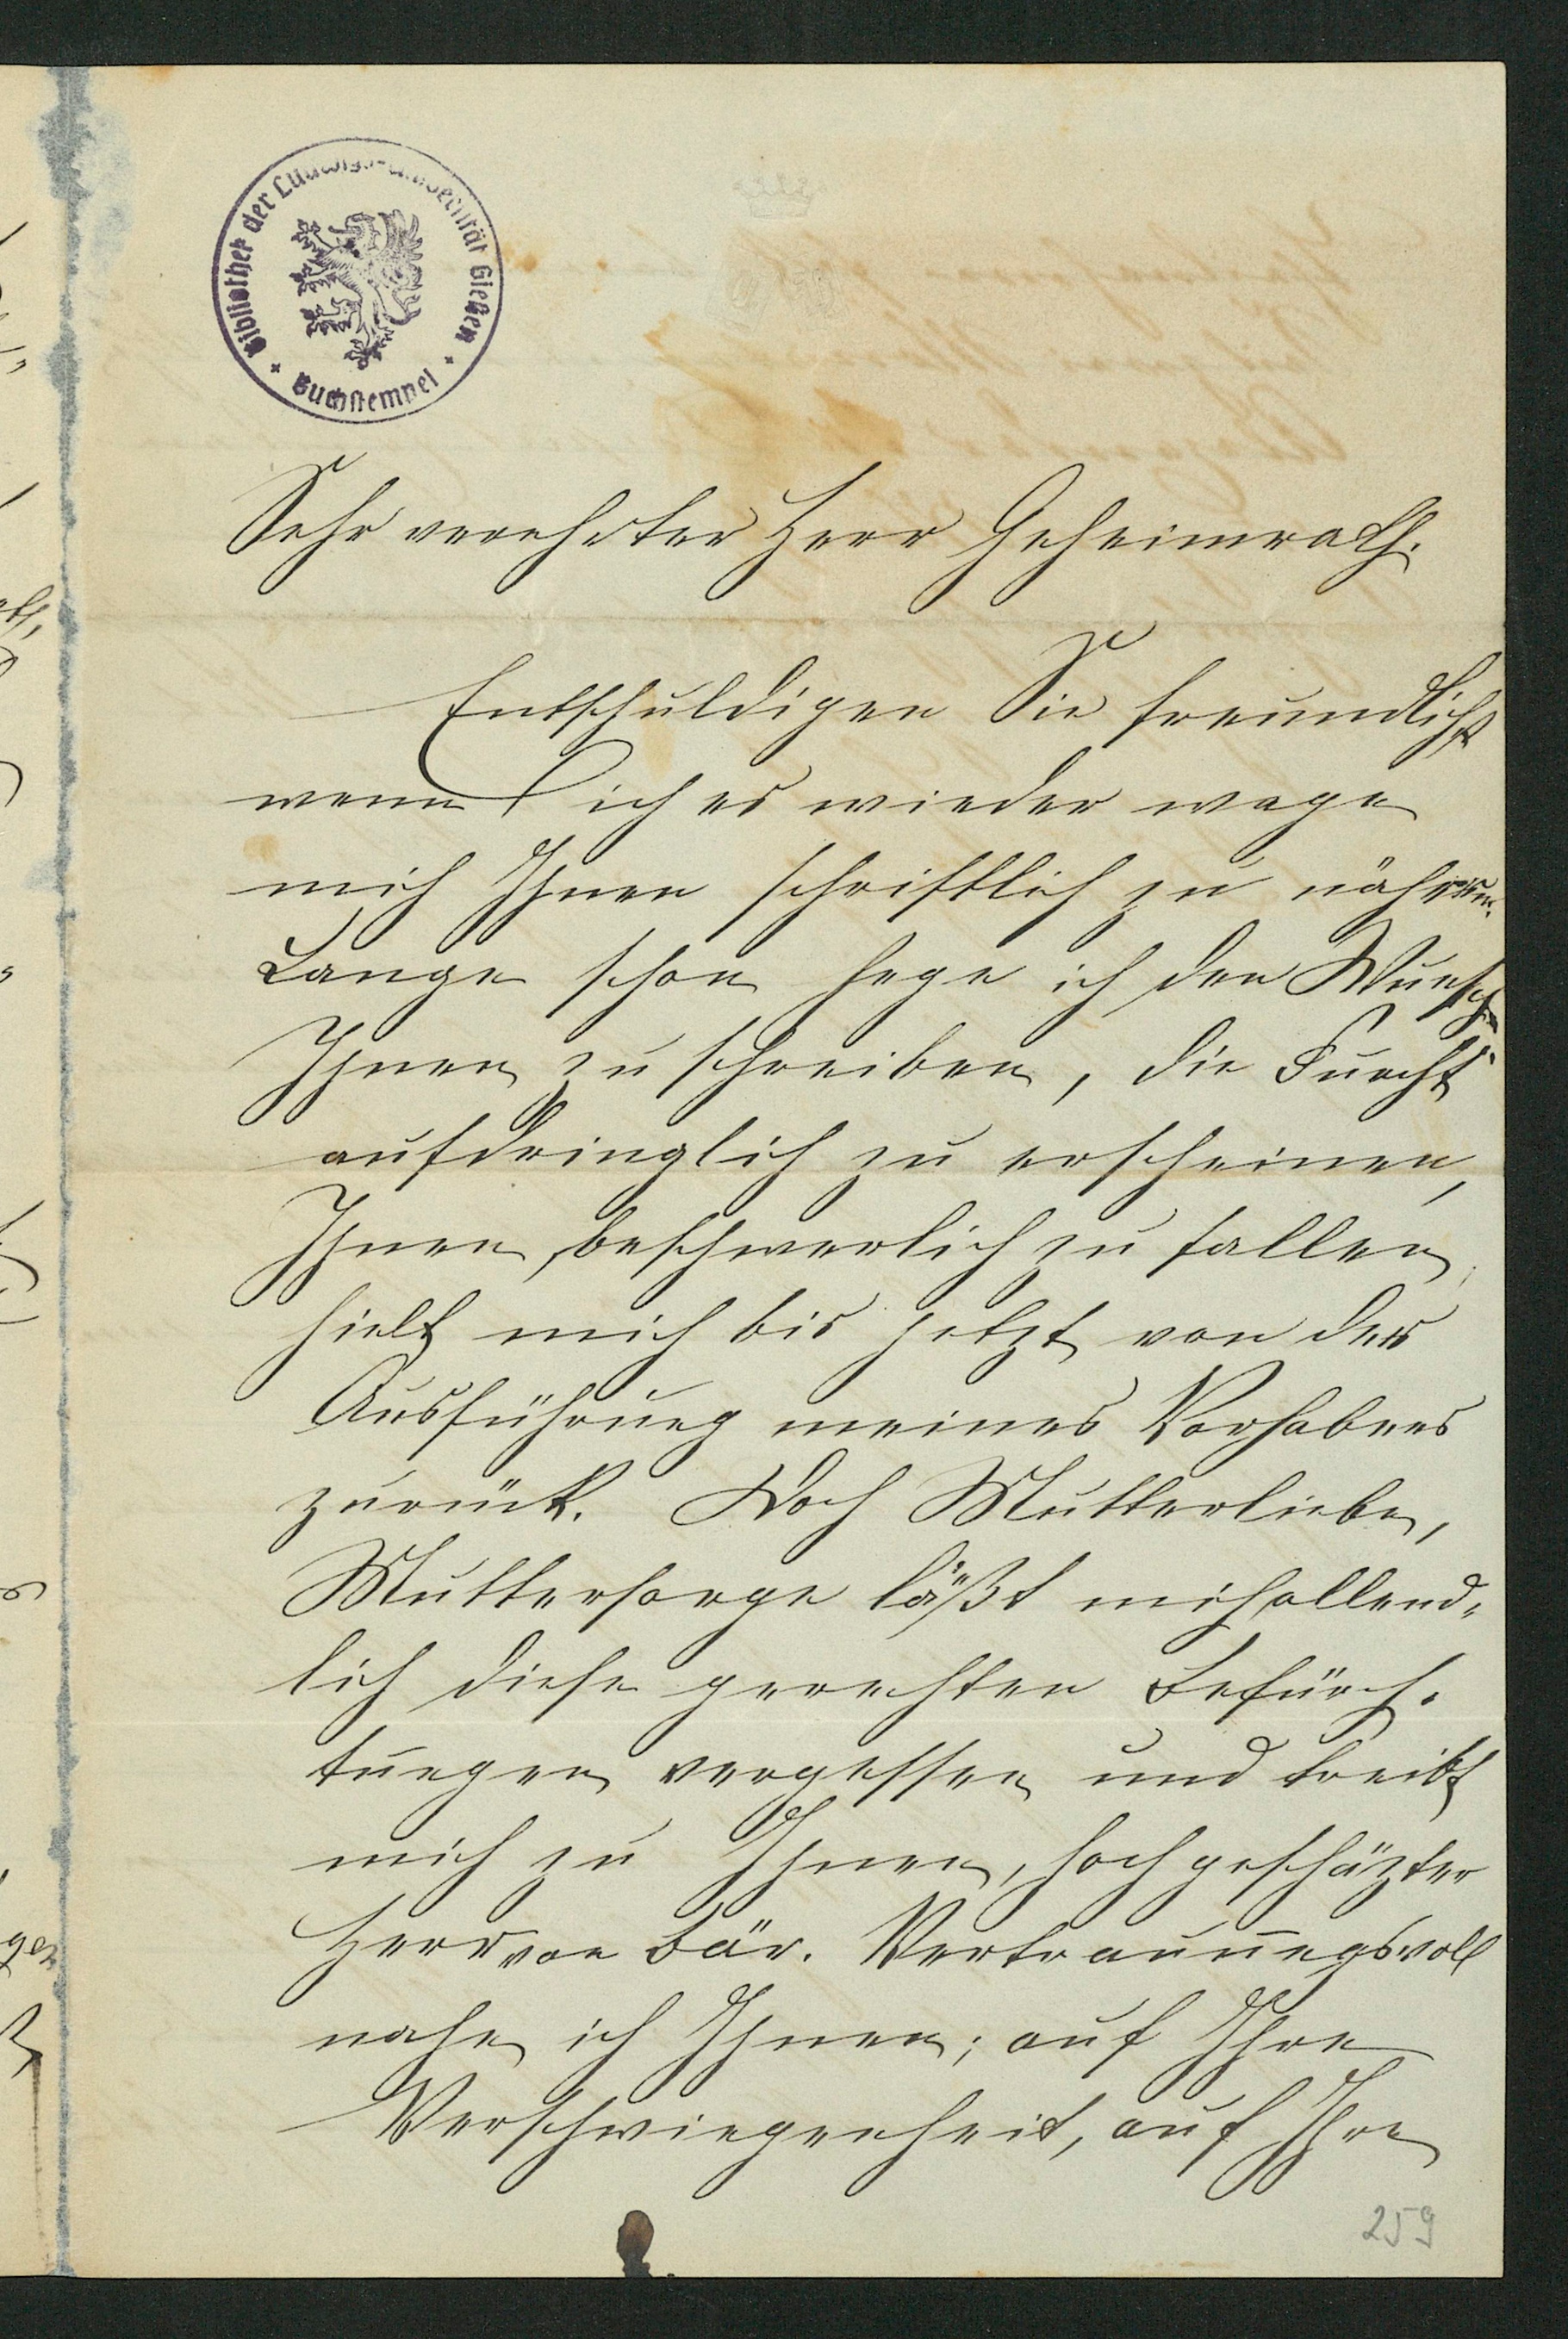 Bibliothek der Ludwigs-Universität Gießen
Buchstempel
Sehr verehrter Herr Geheimrath.
Entschuldigen Sie freundlichst
wenn ich es wieder wage
mich Ihnen schriftlich zu nähern.
Lange schon hege ich den Wunsch
Ihnen zu schreiben, die Furcht
aufdringlich zu erscheinen,
Ihnen beschwerlich zu fallen,
hielt mich bis jetzt von der
Ausführung meines Vorhabens
zurück. Doch Mutterliebe,
Muttersorge läßt mich allend-
lich diese gerechten Befürch-
tungen vergessen und treibt
mich zu Ihnen, hochgeschäzter
Herr von Bär. Vertrauungsvoll
nahe ich Ihnen; auf Ihre
Verschwiegenheit, auf Ihre
259